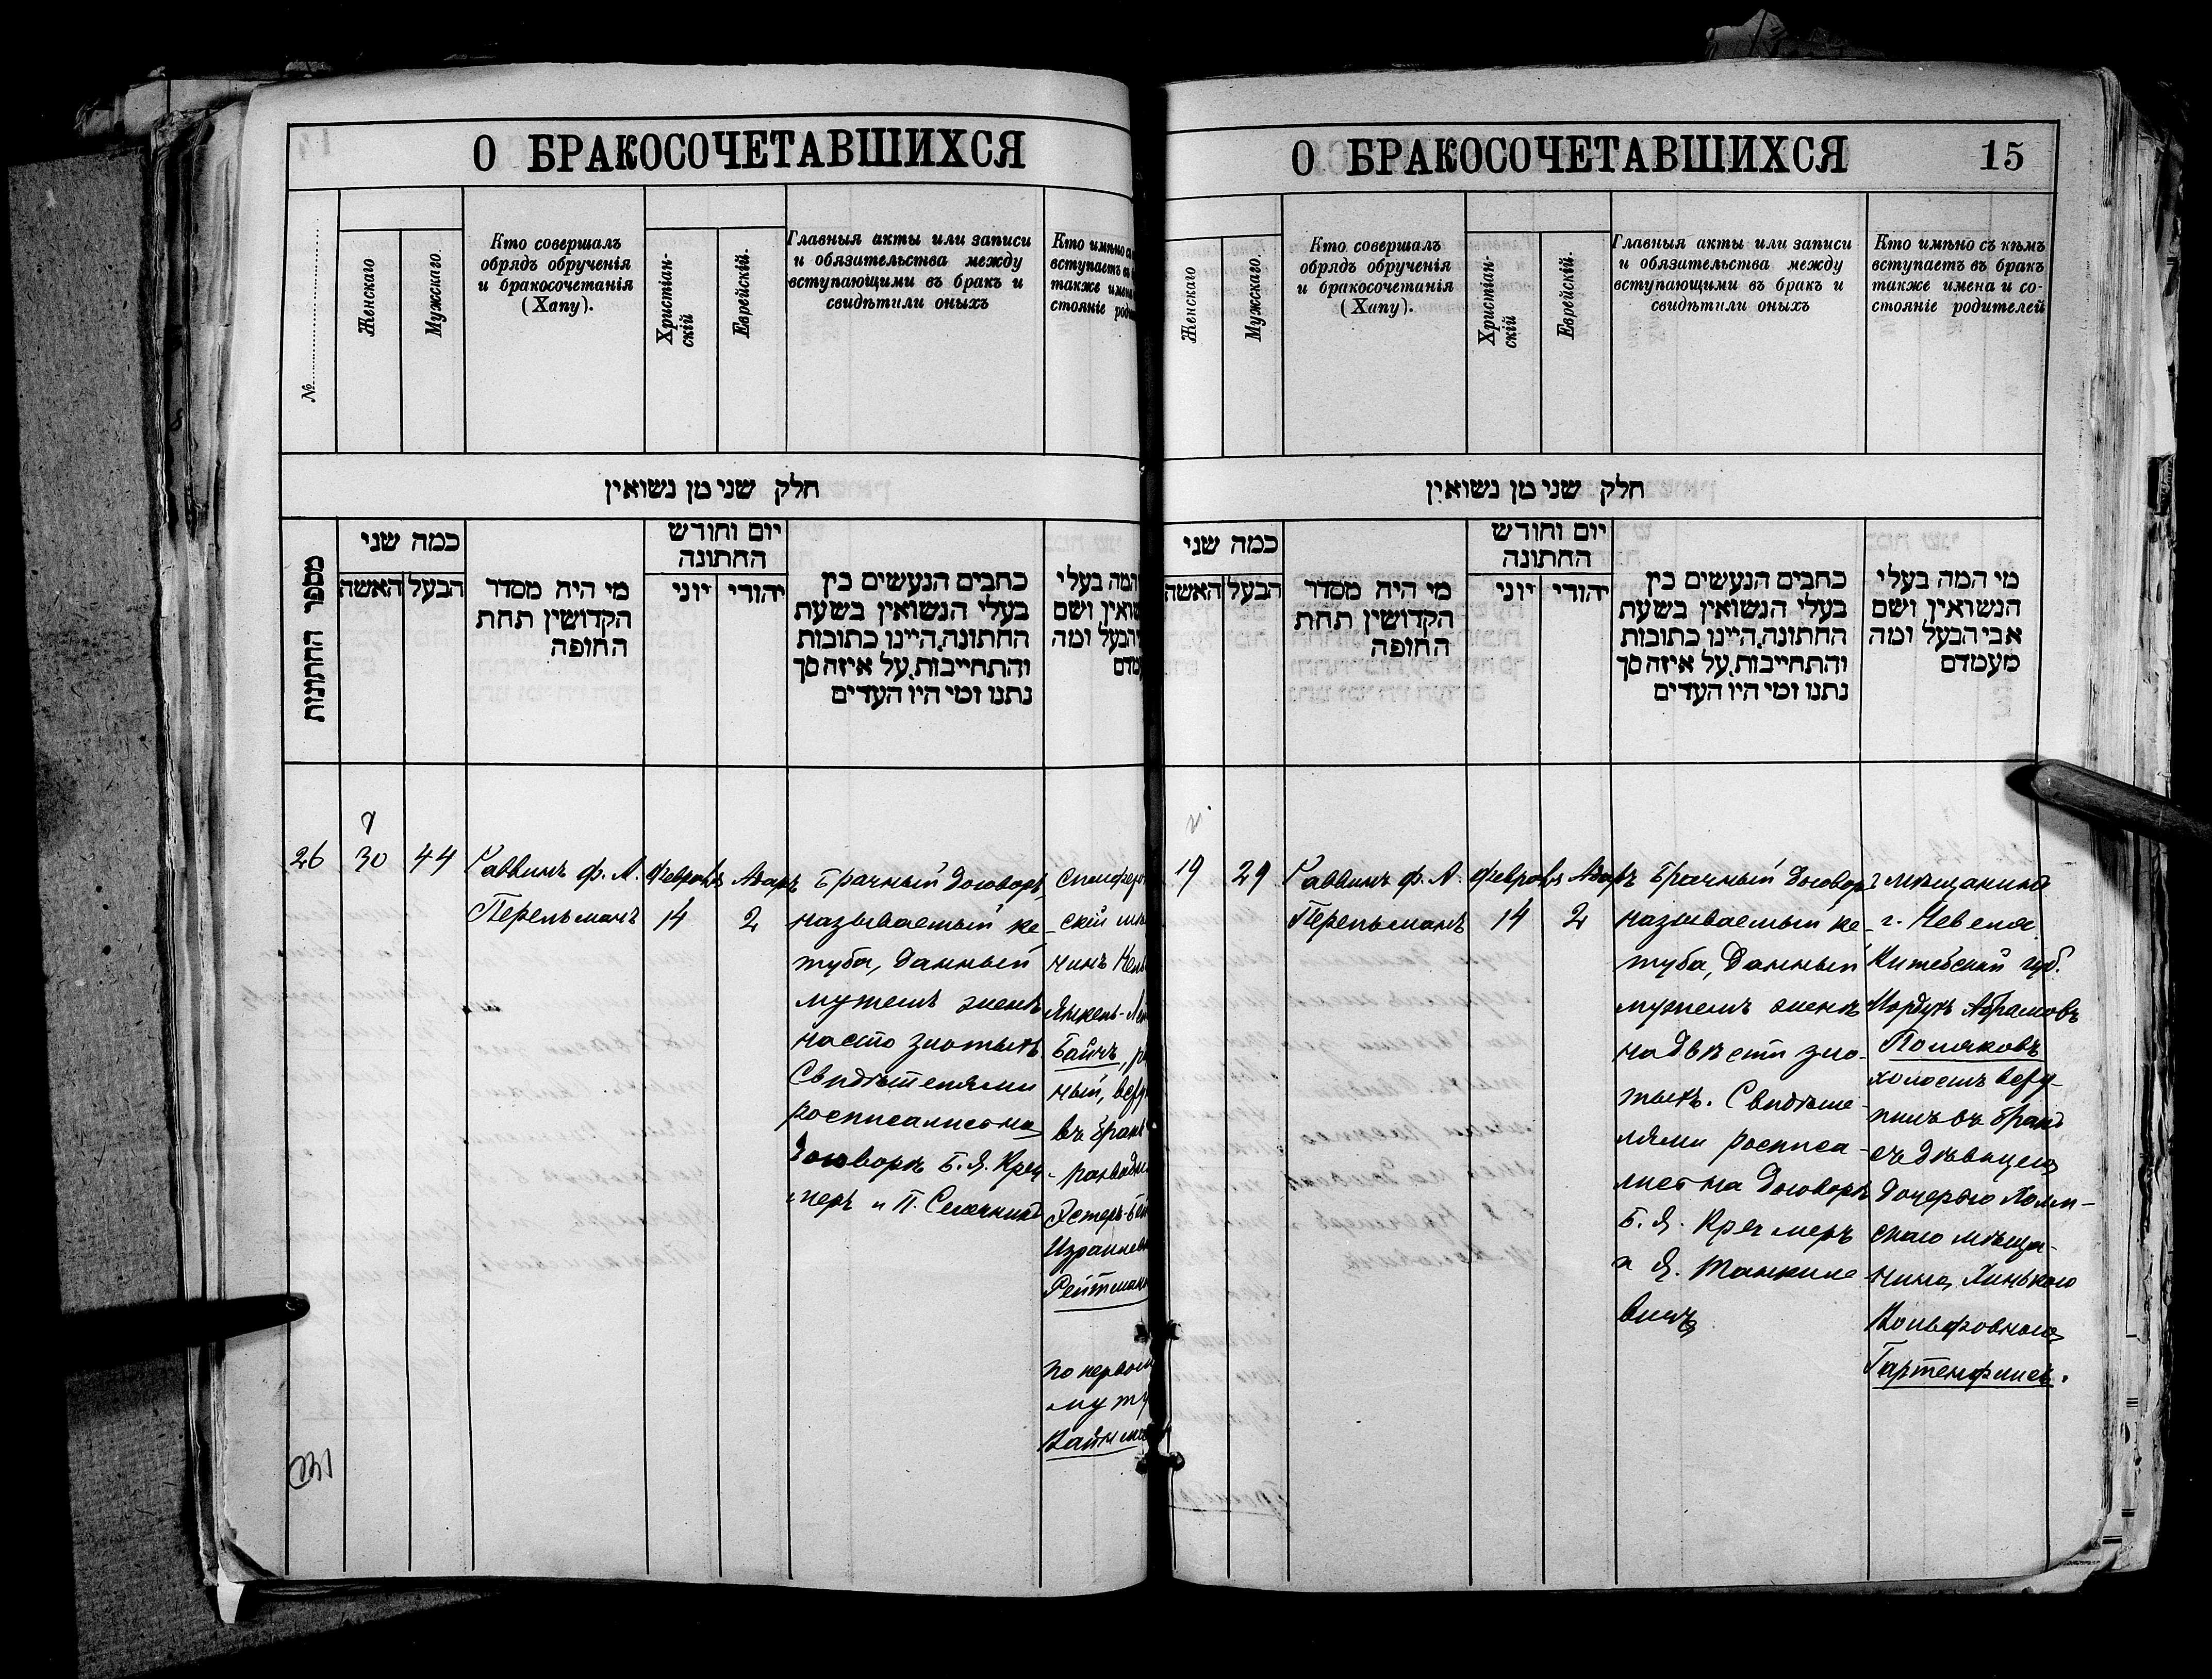 О БРАКОСОЧЕТАВШИХСЯ
№
Женскаго
Мужскаго.
Кто совершалъ
обрядъ обрученія
и бракосочетанія
(Хапу).
Христіан-
скій
Еврейскій.
Главныя акты или записи
и обязательства между
вступающими въ бракъ и
свидѣтили оныхъ
Кто имѣно
вступаетъ
также
стояніе
חלק שני מן נשואין
מספר החתונות
כמה שני
האשה
הבעל
מי היה מסדר
הקדושין תחת
החופה
יום וחודש
החתונה
יוני
יהודי
כתבים הנעשים בין
בעלי הנשואין בשעת
החתונה, היינו כתובות
והתחייבות, על איזה סך
נתנו ומי היו העדים
המה בעלי
ושם
ומה
26
30
44
Раввинъ Ф. А.
Перельманъ
Февраль
14
Адаръ
2
Брачный договоръ,
называемый ке-
туба, данный
мужемъ женѣ
на сто злотыхъ
Свидѣтелями
росписались на
договорѣ Б. Я. Креч-
меръ и П.
скій
чинъ
Янкель-
Байчъ,
ный,
въ бракъ
Эстеръ-
по первому
мужу
О БРАКОСОЧЕТАВШИХСЯ
15
Женскаго
Мужскаго.
Кто совершалъ
обрядъ обрученія
и бракосочетанія
(Хапу).
Христіан-
скій
Еврейскій.
Главныя акты или записи
и обязательства между
вступающими въ бракъ и
свидѣтили оныхъ
Кто имѣно съ кѣмъ
вступаетъ въ бракъ
также имена и со-
стояніе родителей
חלק שני מן נשואין
כמה שני
האשה
הבעל
מי היה מסדר
הקדושין תחת
החופה
יום וחודש
החתונה
יוני
יהודי
כתבים הנעשים בין
בעלי הנשואין בשעת
החתונה, היינו כתובות
והתחייבות, על איזה סך
נתנו ומי היו העדים
מי המה בעלי
הנשואין ושם
אבי הבעל ומה
מעמדם
19
29
Раввинъ Ф. А.
Перельманъ
Февраль
14
Адаръ
2
Брачный договоръ
называемый ке-
туба, данный
мужемъ женѣ
на двѣсти зло-
тыхъ. Свидѣте-
лями росписа-
лись на договорѣ
Б. Я. Кречмеръ
и Я. Танкиле-
вичъ
мѣщанинъ
г. Невеля
Витебской губ.
Мордухъ Абрамовъ
Поляковъ
холостъ всту-
пилъ въ бракъ
съ дѣвицею
дочерью Холм-
скаго мѣща-
нина,
Вольфовною
Гартенфлисъ.